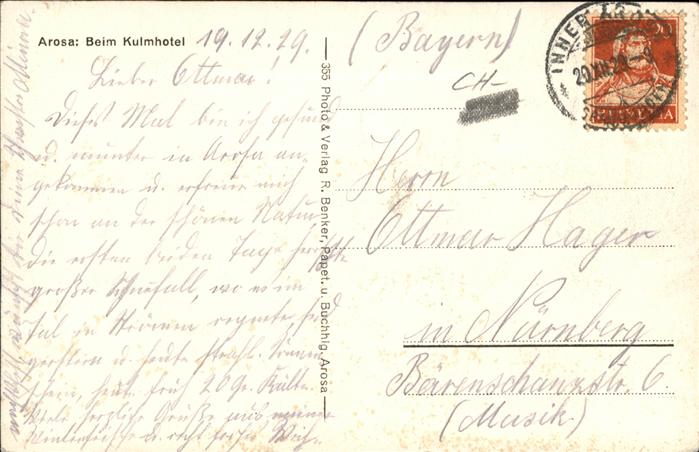 Arosa: Beim Kulmhotel 19.12.29.
Lieber Ottmar!
Dieses Mal bin ich gesund
u. munter in Arosa an-
gekommen u. erfreue mich
schon an der schönen Natur.
Die ersten beiden Tage herrschte
großer Schneefall, wo es im
Tal in Strömen regnete, und
gestern u. heute strahl. Sonnen-
schein, heute früh 20 Gr. Kälte.
Viele herzliche Grüße aus meiner
Winterfrische u. recht frohes Weih-
355 Photo & Verlag R. Benker, Papet. u. Buchhlg. Arosa
(Bayern)
CH-
INNER AROSA
20.XII.29.-9
20
HELVETIA
Herrn
Ottmar Hager
in Nürnberg
Bärenschanzstr. 6.
(Musik)